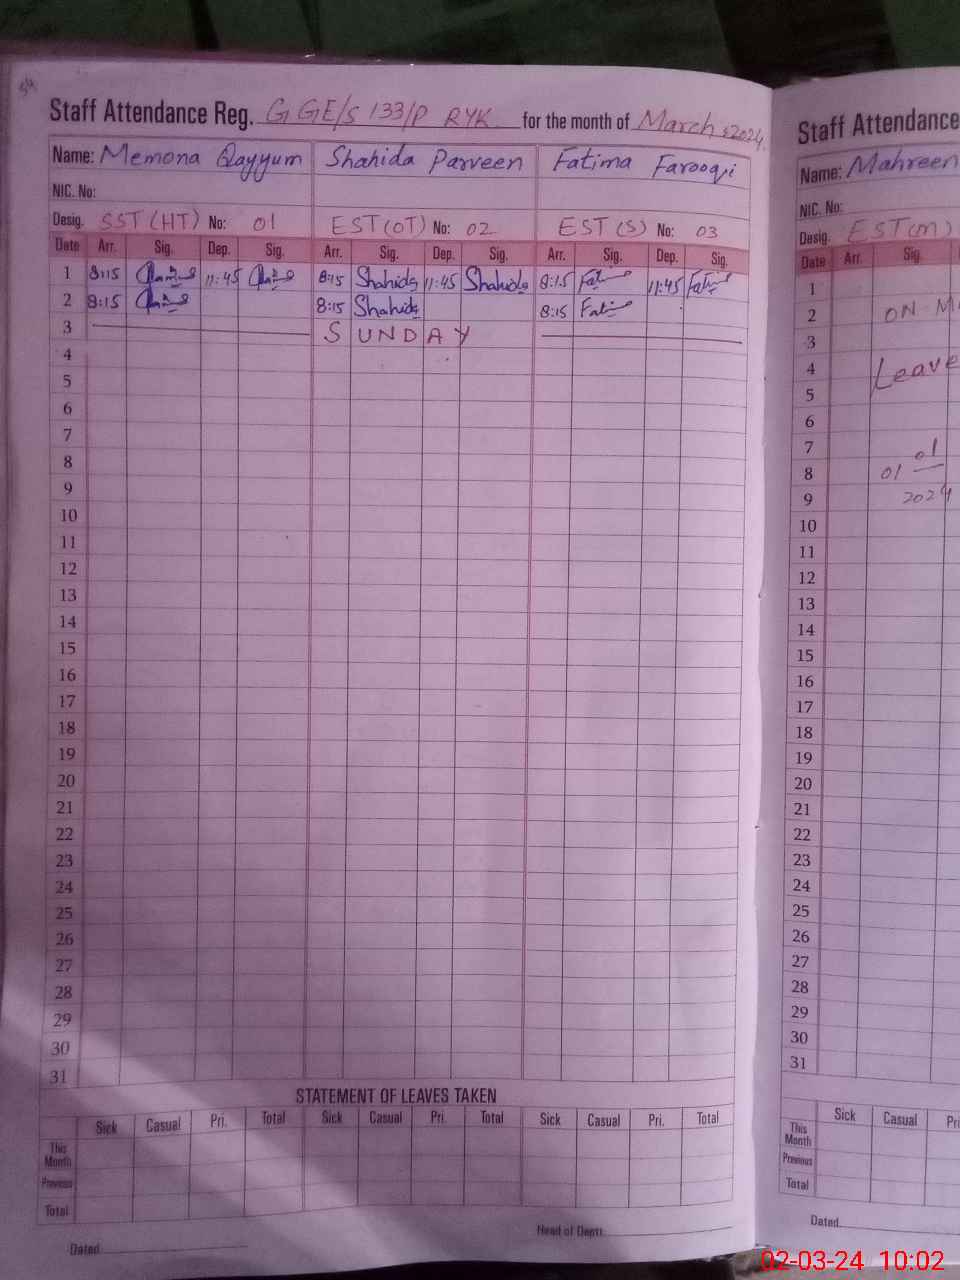 Staff Attendance Reg. G GE/S 133/P RYK for the month of March, 2024
Name: Memona Qayyum Shahida Parveen Fatima Farooqi
NIC. No:
Desig. SST (HT) No: 01 EST (OT) No: 02 EST (S) No: 03
Date Arr. Sig. Dep. Sig. Arr. Sig. Dep. Sig. Arr. Sig. Dep. Sig.
1 8:15 11:45 8:15 Shahida 11:45 Shahida 8:15 11:45
2 8:15 8:15 Shahida 8:15
3 SUNDAY
4
5
6
7
8
9
10
11
12
13
14
15
16
17
18
19
20
21
22
23
24
25
26
27
28
29
30
31
STATEMENT OF LEAVES TAKEN
Sick Casual Pri. Total Sick Casual Pri. Total Sick Casual Pri. Total
This Month
Previous
Total
Dated Head of Deptt.
Staff Attendance
Name: Mahreen
NIC. No:
Desig. EST (m)
Date Arr. Sig.
1
2 ON
3
4 Leave
5
6
7 01
8 01
9 2024
10
11
12
13
14
15
16
17
18
19
20
21
22
23
24
25
26
27
28
29
30
31
Sick Casual
This Month
Previous
Total
Dated
02-03-24 10:02